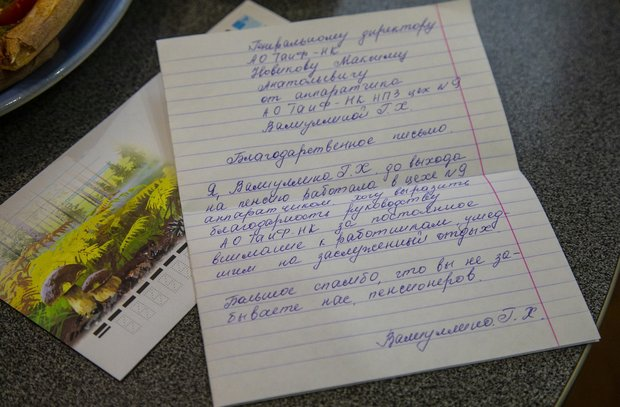 Генеральному директору
АО ТаиФ-НК
Новикову Максиму
Анатольевичу
от аппаратчика
АО ТАИФ-НК НПЗ цех №9
Валиуллиной Г. Х.
Благодарственное письмо.
Я, Валиуллина Г. Х. до выхода
на пенсию работала в цехе №9
аппаратчиком хочу выразить
благодарность руководству
АО ТАИФ НК за постоянное
внимание к работникам, ушед-
шим на заслуженный отдых.
Большое спасибо, что вы не за-
бываете нас, пенсионеров.
Валиуллина. Г. Х.